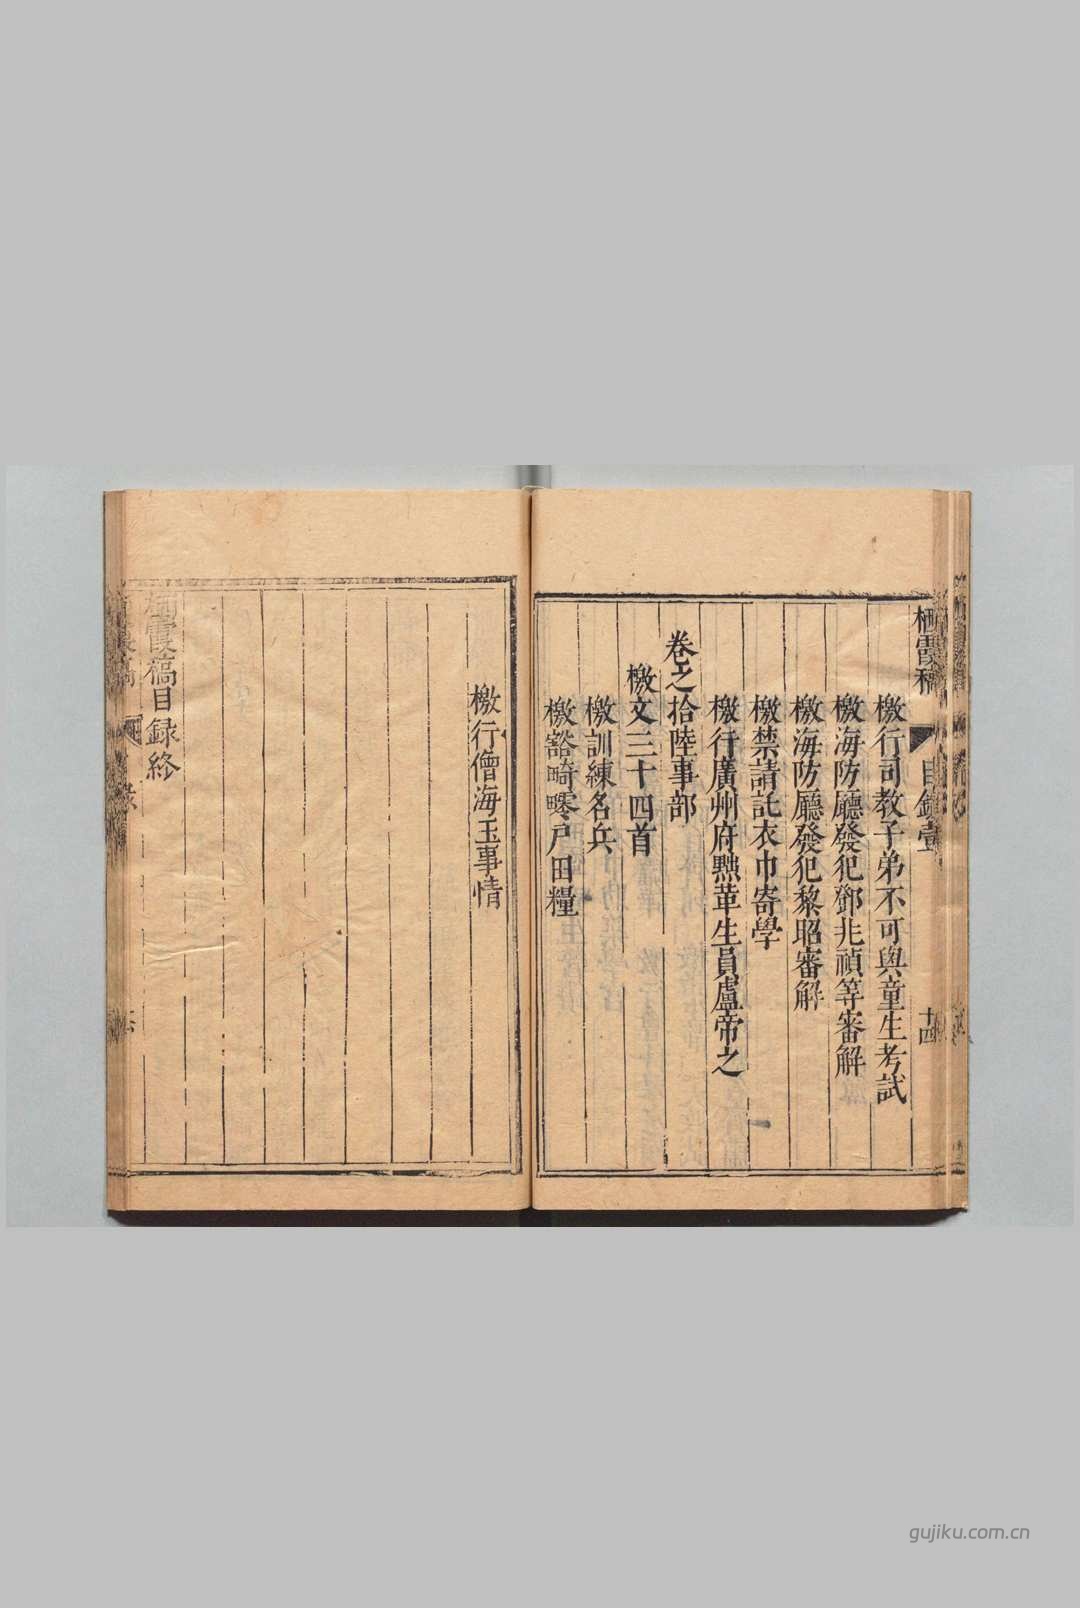 栖霞稿 目錄壹 十四
檄行司教子弟不可與童生考試
檄海防廳發犯鄧兆禎等審解
檄海防廳發犯黎昭審解
檄禁請託衣巾寄學
檄行廣州府黜革生員盧帝之
卷之拾陸事部
檄文三十四首
檄訓練名兵
檄豁畸零戶田糧
檄行僧海玉事情
栖霞稿目録終
gujiku.com.cn